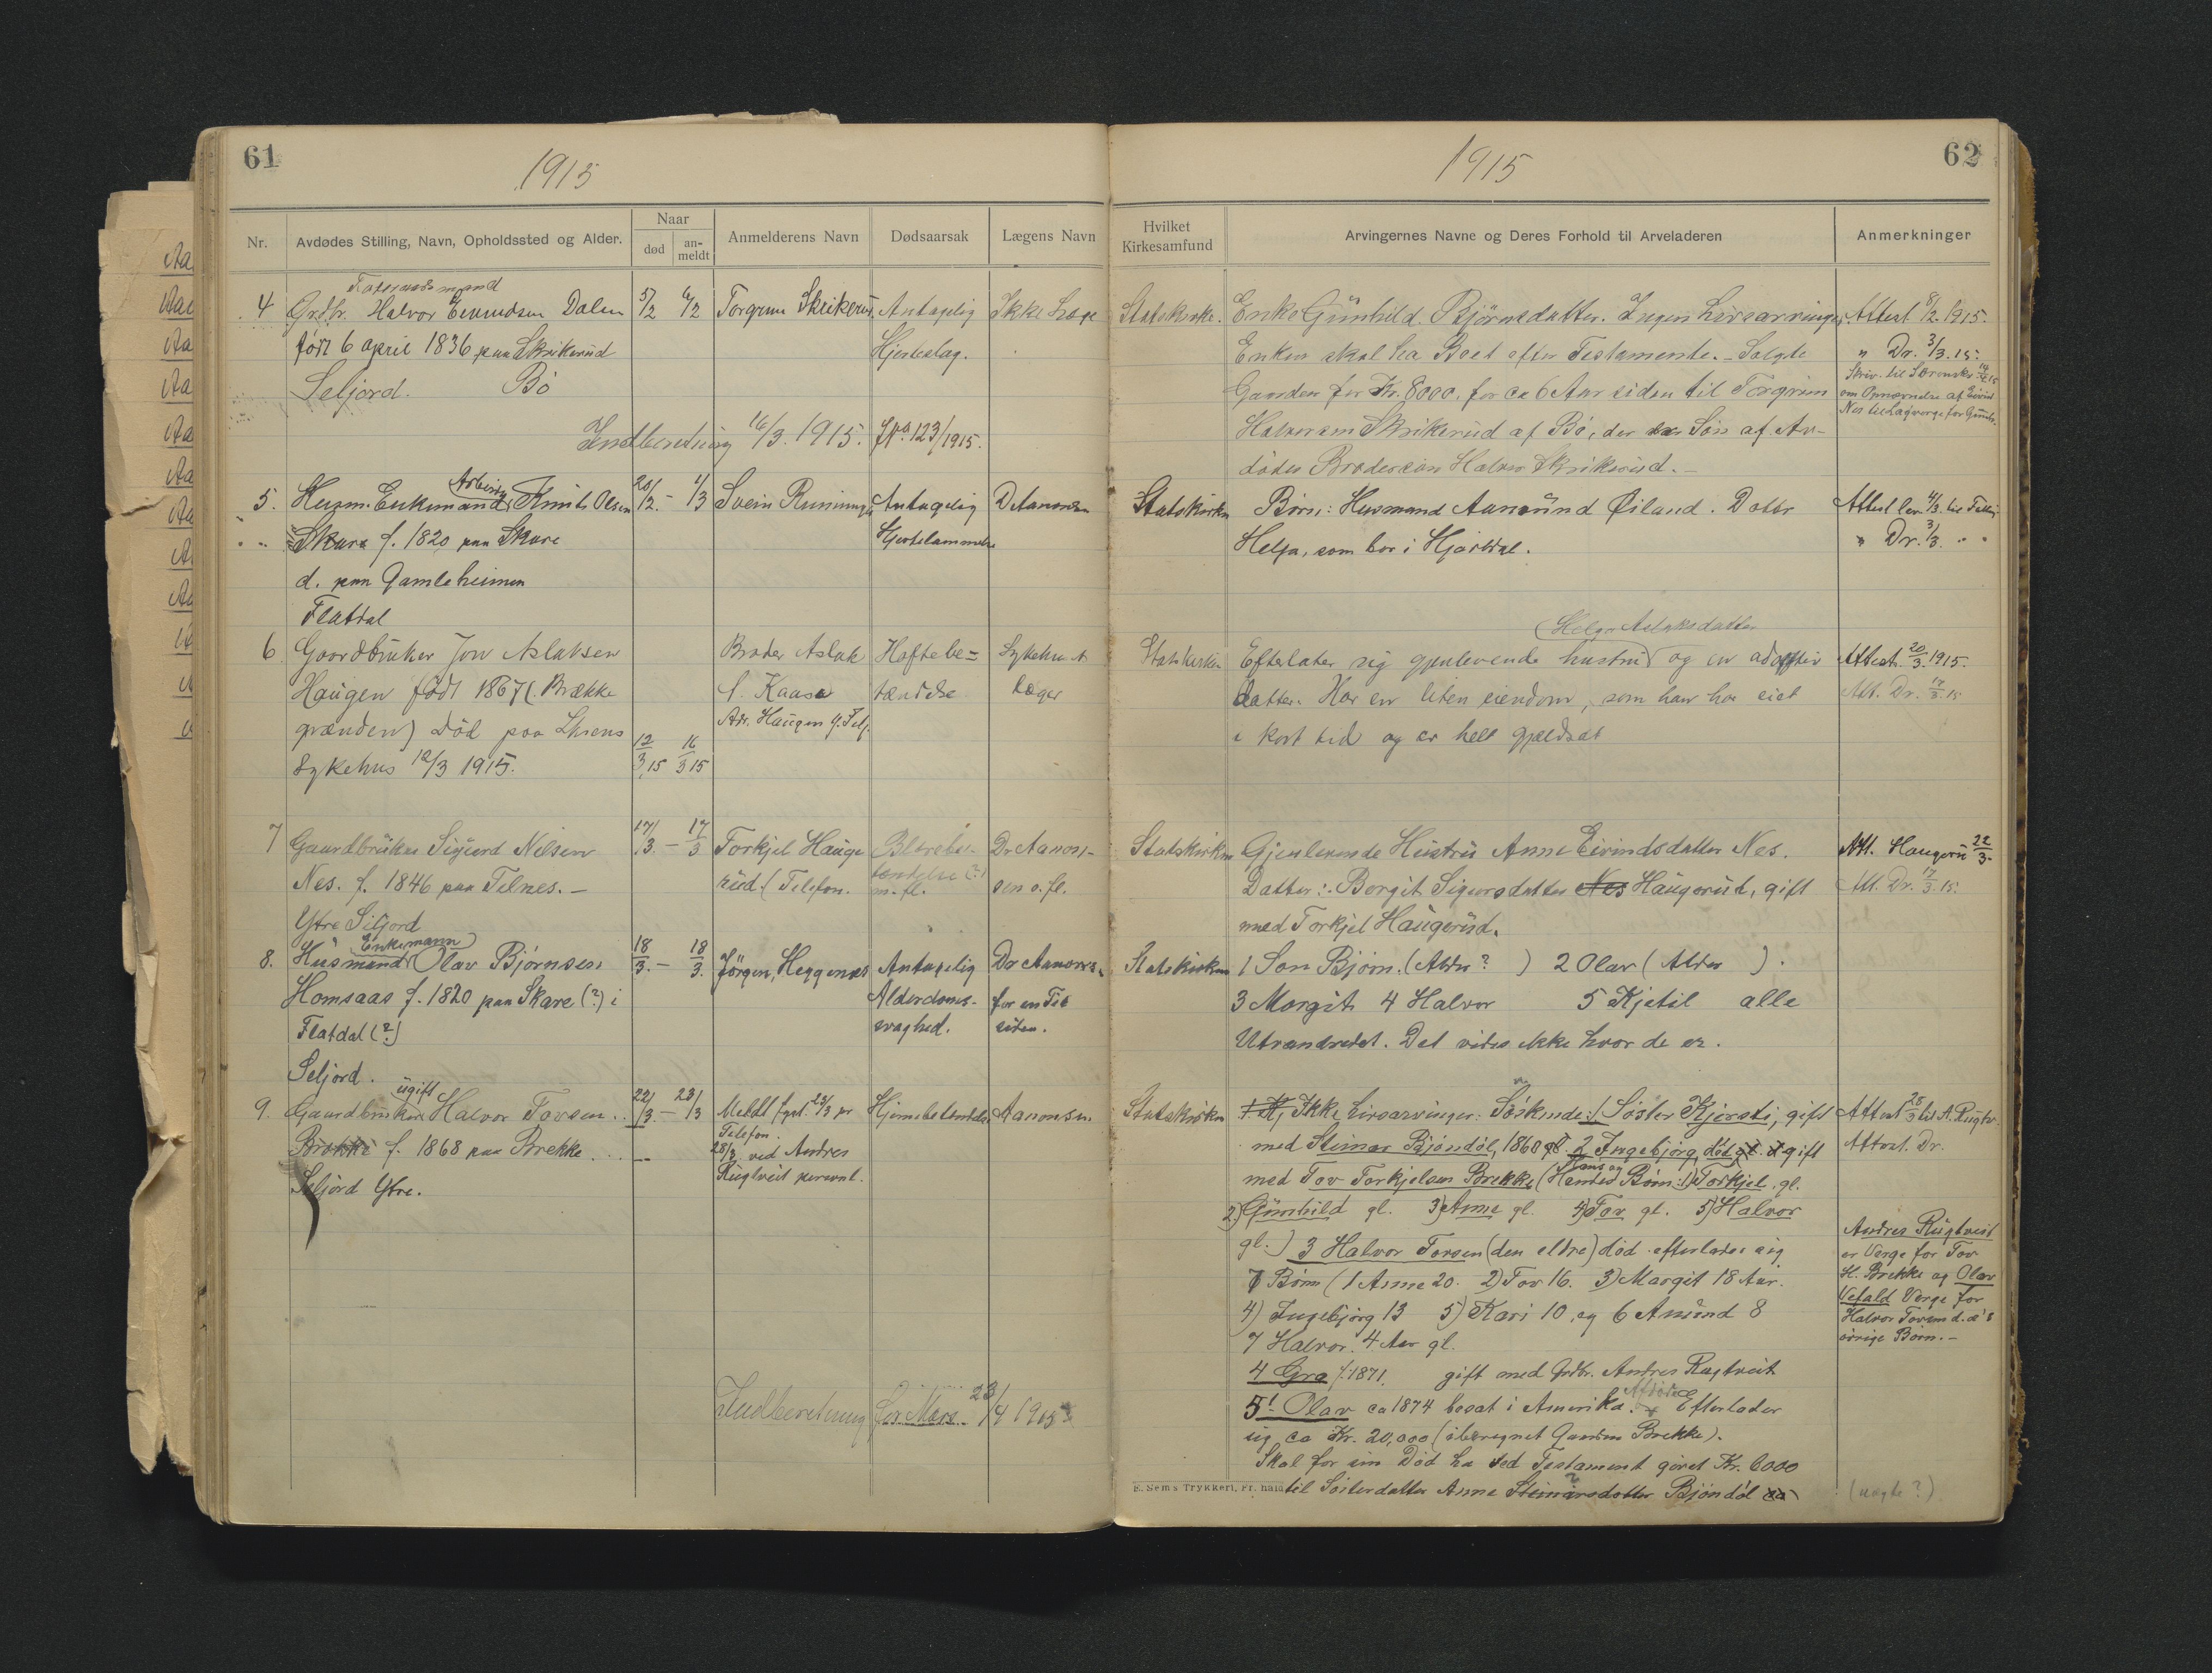 61
1915
Nr.
Avdødes Stilling, Navn, Opholdssted og Alder.
Naar
død
an-
meldt
Anmelderens Navn
Dødsaarsak
Lægens Navn
4
Grdbr. Halvor Eivindsen Dalen
født 6 april 1836 paa Skrikerud
Seljord. Bö
5/2 6/2
Torgrim Skrikerud
Antagelig
Hjerteslag.
Ikke Læge
Indberetning 16/3. 1915. No 123/1915.
5.
Arbeider
Husm. Enkemand Knut Olsen
Skare f. 1820 paa Skare
d. paa Gamleheimen
Flatdal
20/2. - 1/3
Svein Runningen
Antagelig
Hjertelammelse
Dr Aanonsen
6.
Gaardbruker Jon Aslaksen
Haugen født 1867 (Brække
grænden) död paa Skiens
Sykehus 12/3 1915.
12/3 15 16/3 15
Broder Aslak
A. Kaasa
Adr. Haugen Y. Selj.
Hoftebe=
tændelse
Sykehusets
læger
7
Gaardbruker Sigurd Nilsen
Nes. f. 1846 paa Telnes. -
Ytre Siljord
17/3. - 17/3
Torkjel Hauge
rud. (Telefon.
Blærebe-
tændelse (?)
m. fl.
Dr Aanon-
sen o. fl.
8.
Enkemann
Husmand Olav Björnsen
Homsaas f. 1820 paa Skare (?) i
Flatdal (?)
Seljord.
18/3. - 18/3.
Jörgen Heggenæs
Antagelig
Alderdoms-
svaghed.
Dr Aanonsen
for en Tid
siden.
9.
ugift
Gaardbruker Halvor Tovsen
Brekke f. 1868 paa Brekke
Seljord Ytre.
22/3 - 23/3
Meldt fyst. 23/3 pr
Telefon.
28/3 ved Andres
Rugtveit personl.
Hjernebetendelse
Aanonsen
Indberetning for Mars 23/4 1915
62
1915
Hvilket
Kirkesamfund
Arvingernes Navne og Deres Forhold til Arveladeren
Anmerkninger
Statskirke.
Enke Gunhild Björnsdatter. Ingen Livsarvinger.
Enken skal ha Boet efter Testamente. - Solgte
Gaarden for Kr. 8000, for ca 6 Aar siden til Torgrim
Halvorsen Skrikerud af Bö, der er Sön af Av-
dödes Brodersön Halvor Skrikerud. -
Attest 8/2. 1915.
" Dr. 3/3. 15.
Statskirken
Börn: Husmand Aanund Øiland. Datter
Helga, som bor i Hjartdal.
Attest lev. 4/3.
" Dr. 3/3. " "
Statskirken
(Helga Aslaksdatter
Efterlater sig gjenlevende hustru og en adoptiv
datter. Har en liten eiendom, som han har eiet
i kort tid og er helt gjældsat
Attest. 20/3. 1915.
Att. Dr. 17/3. 15
Statskirken
Gjenlevende Hustru Anne Eivindsdatter Nes.
Datter: Borgit Sigursdatter Nes Haugerud, gift
med Torkjel Haugerud.
Att. Haugerud 22/3.
Att. Dr. 17/3. 15.
Statskirken
1 Son Björn. (Alder ? ) 2 Olav (Alder ).
3 Margit 4 Halvor 5 Kjetil alle
Utvandredet. Det vides ikke hvor de er.
Statskirken
Ikke Livsarvinger. Söskende: 1 Söster Kjersti, gift
med Steinar Bjöndöl, 1860 2 Ingebjörg, död gift
med Tov Torkjelsen Brekke (Hans og Hendes Börn: 1) Torkjel gl.
2) Gunhild gl. 3) Anne gl. 4) Tov gl. 5) Halvor
gl.) 3 Halvor Tovsen (den eldre) död efterlater sig
7 Börn (1 Anne 20. 2) Tov 16. 3) Margit 18 Aar.
4) Ingebjörg 13 5) Kari 10, og 6 Amund 8
7 Halvor. 4. Aar gl.
4 Gro f. 1871. gift med Grdbr. Andres Rugtveit
5! Olav ca 1874 bosat i Amerika. Afdöde Efterlader
sig ca Kr. 20,000 (iberegnet Gaarden Brekke).
Skal för sin Död ha ved Testament gjoret Kr. 6000
til Sösterdatter Anne Steinarsdatter Bjöndöl
Attest 28/3 til A. Rugtv.
Attest. Dr.
Andres Rugtveit
er Verge for Tov
H. Brekke og Olav
Vefald Verge for
Halvor Tovsen d. æ's
övrige Börn. -
(uægte?)
E. Sems Trykkeri, Fr. hald